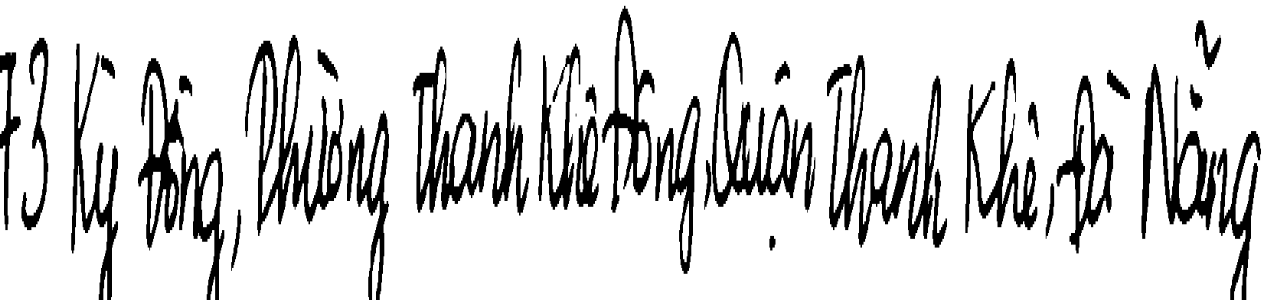 73 Kỳ Đồng, Phường Thanh Khê Đông, Quận Thanh Khê, Đà Nẵng